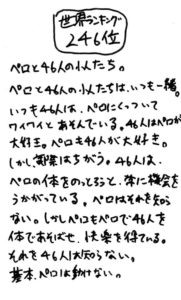 世界ランキング
246位
ペロと46人の小人たち。
ペロと46人の小人たちは、いつも一緒。
いつも46人は、ペロにくっついて
ワイワイとあそんでいる。46人はペロが
大好き。ペロも46人が大好き。
しかし実際はちがう。46人は、
ペロの体をのっとろうと、常に機会を
うかがっている。ペロはそれを知ら
ない。しかしペロもペロで46人を
体であそばせ、快楽を得ている。
それを46人は知らない。
基本、ペロは動けない。